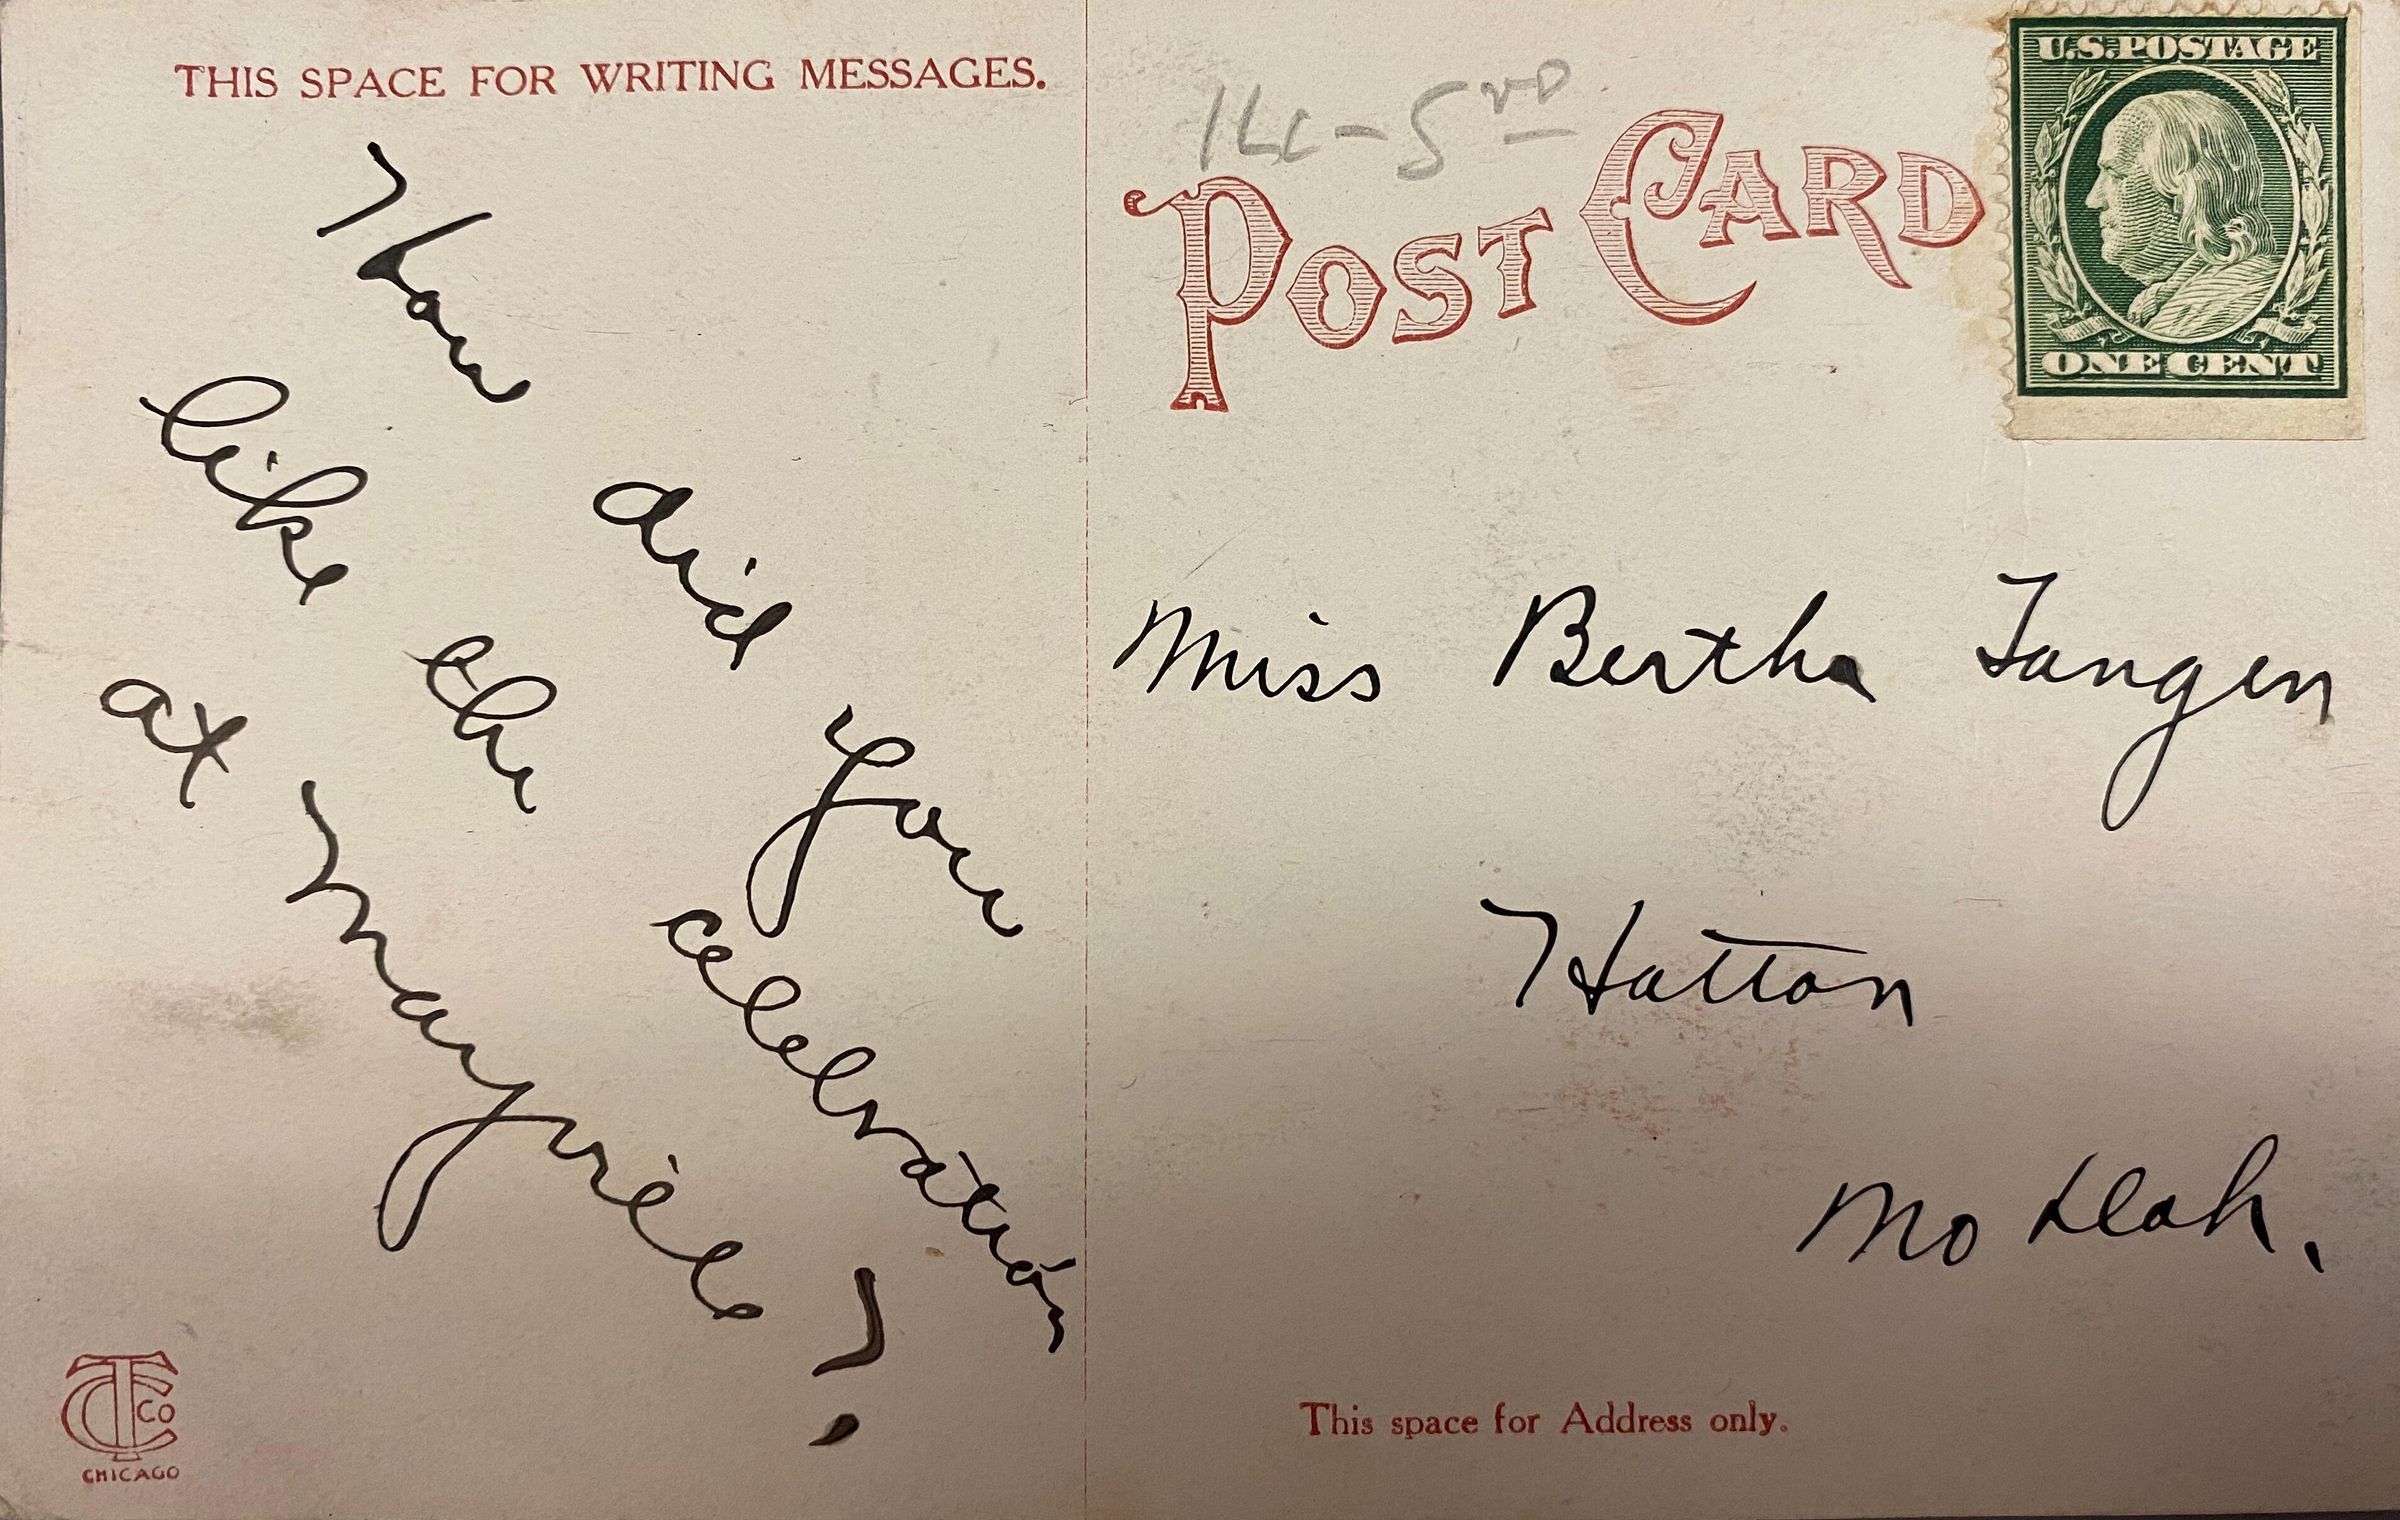 THIS SPACE FOR WRITING MESSAGES.
How did you
like the celebration
at Mayville?
CTCo
CHICAGO
POST CARD
U.S. POSTAGE
ONE CENT
Miss Bertha Tangen
Hatton
No Dak.
This space for Address only.